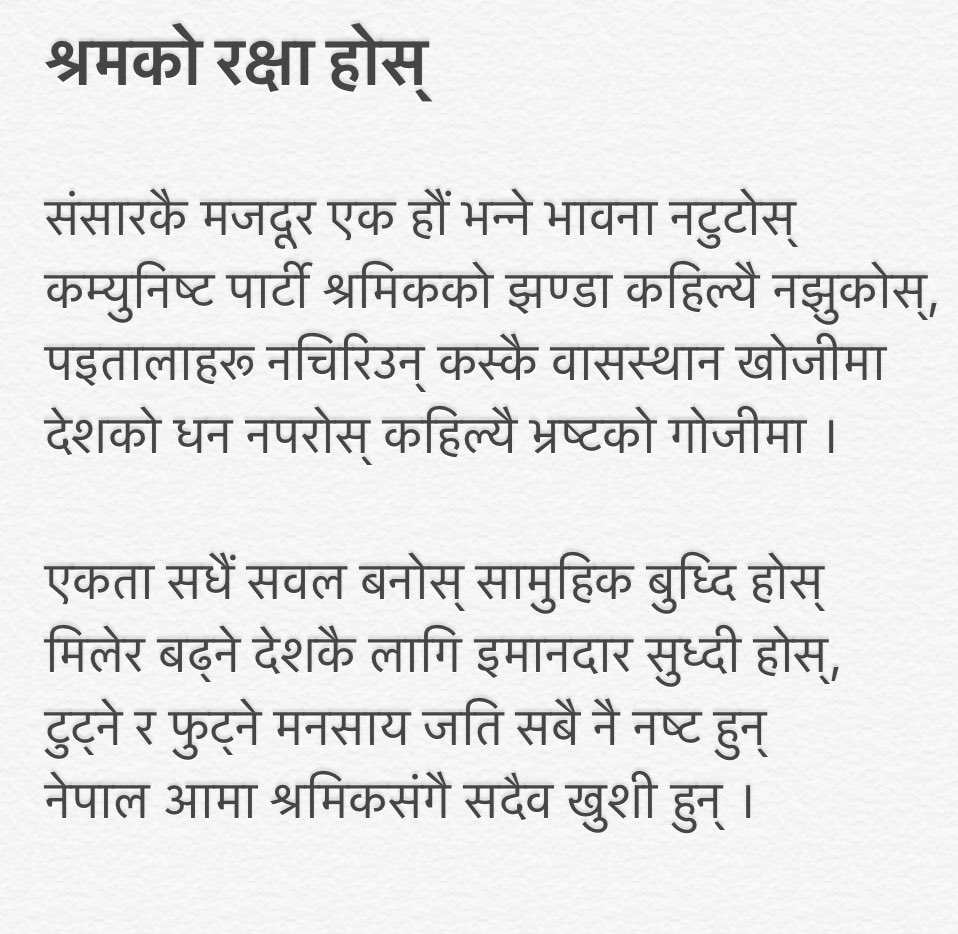 श्रमको रक्षा होस्
संसारकै मजदूर एक हौं भन्ने भावना नटुटोस्
कम्युनिष्ट पार्टी श्रमिकको झण्डा कहिल्यै नझुकोस्,
पइतालाहरू नचिरिउन् कस्कै वासस्थान खोजीमा
देशको धन नपरोस् कहिल्यै भ्रष्टको गोजीमा ।
एकता सधैं सवल बनोस् सामुहिक बुध्दि होस्
मिलेर बढ्ने देशकै लागि इमानदार सुध्दी होस्,
टुट्ने र फुट्ने मनसाय जति सबै नै नष्ट हुन्
नेपाल आमा श्रमिकसंगै सदैव खुशी हुन् ।